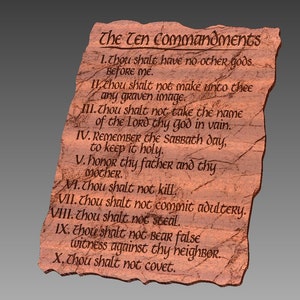 The Ten Commandments
I. Thou shalt have no other gods
before me.
II. Thou shalt not make unto thee
any graven image.
III. Thou shalt not take the name
of the Lord thy God in vain.
IV. Remember the Sabbath day,
to keep it holy.
V. Honor thy father and thy
mother.
VI. Thou shalt not kill.
VII. Thou shalt not commit adultery.
VIII. Thou shalt not steal.
IX. Thou shalt not bear false
witness against thy neighbor.
X. Thou shalt not covet.